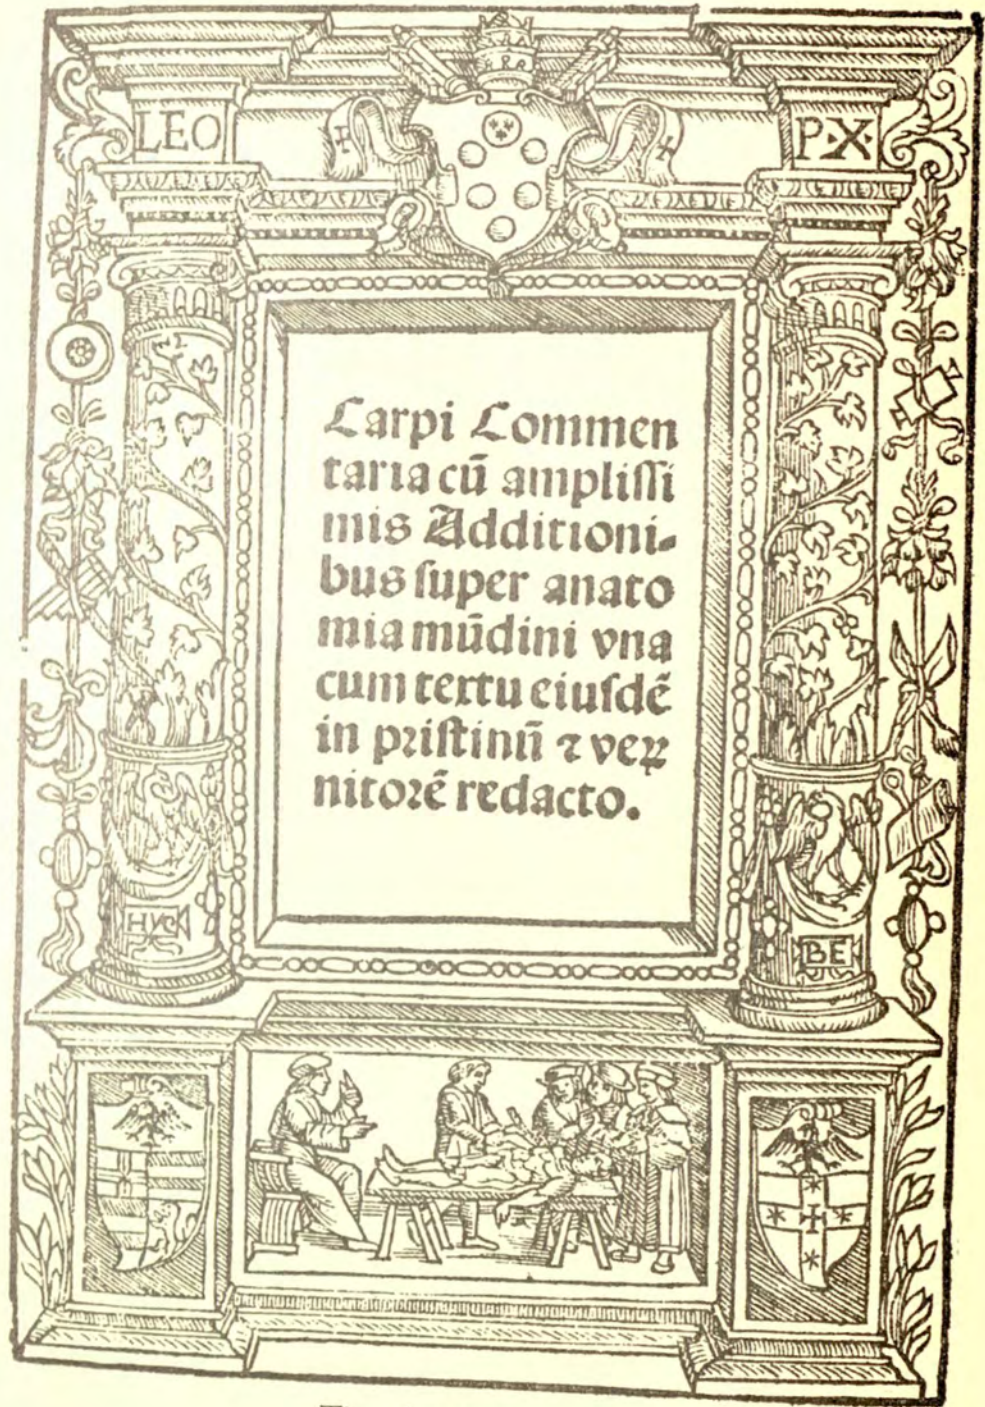 LEO
P·X·
Carpi Commen
taria cū ampliſſi
mis Additioni-
bus ſuper anato
mia mūdini vna
cum textu eiuſdē
in priſtinū ⁊ veꝝ
nitorē redacto.
HYC
BE